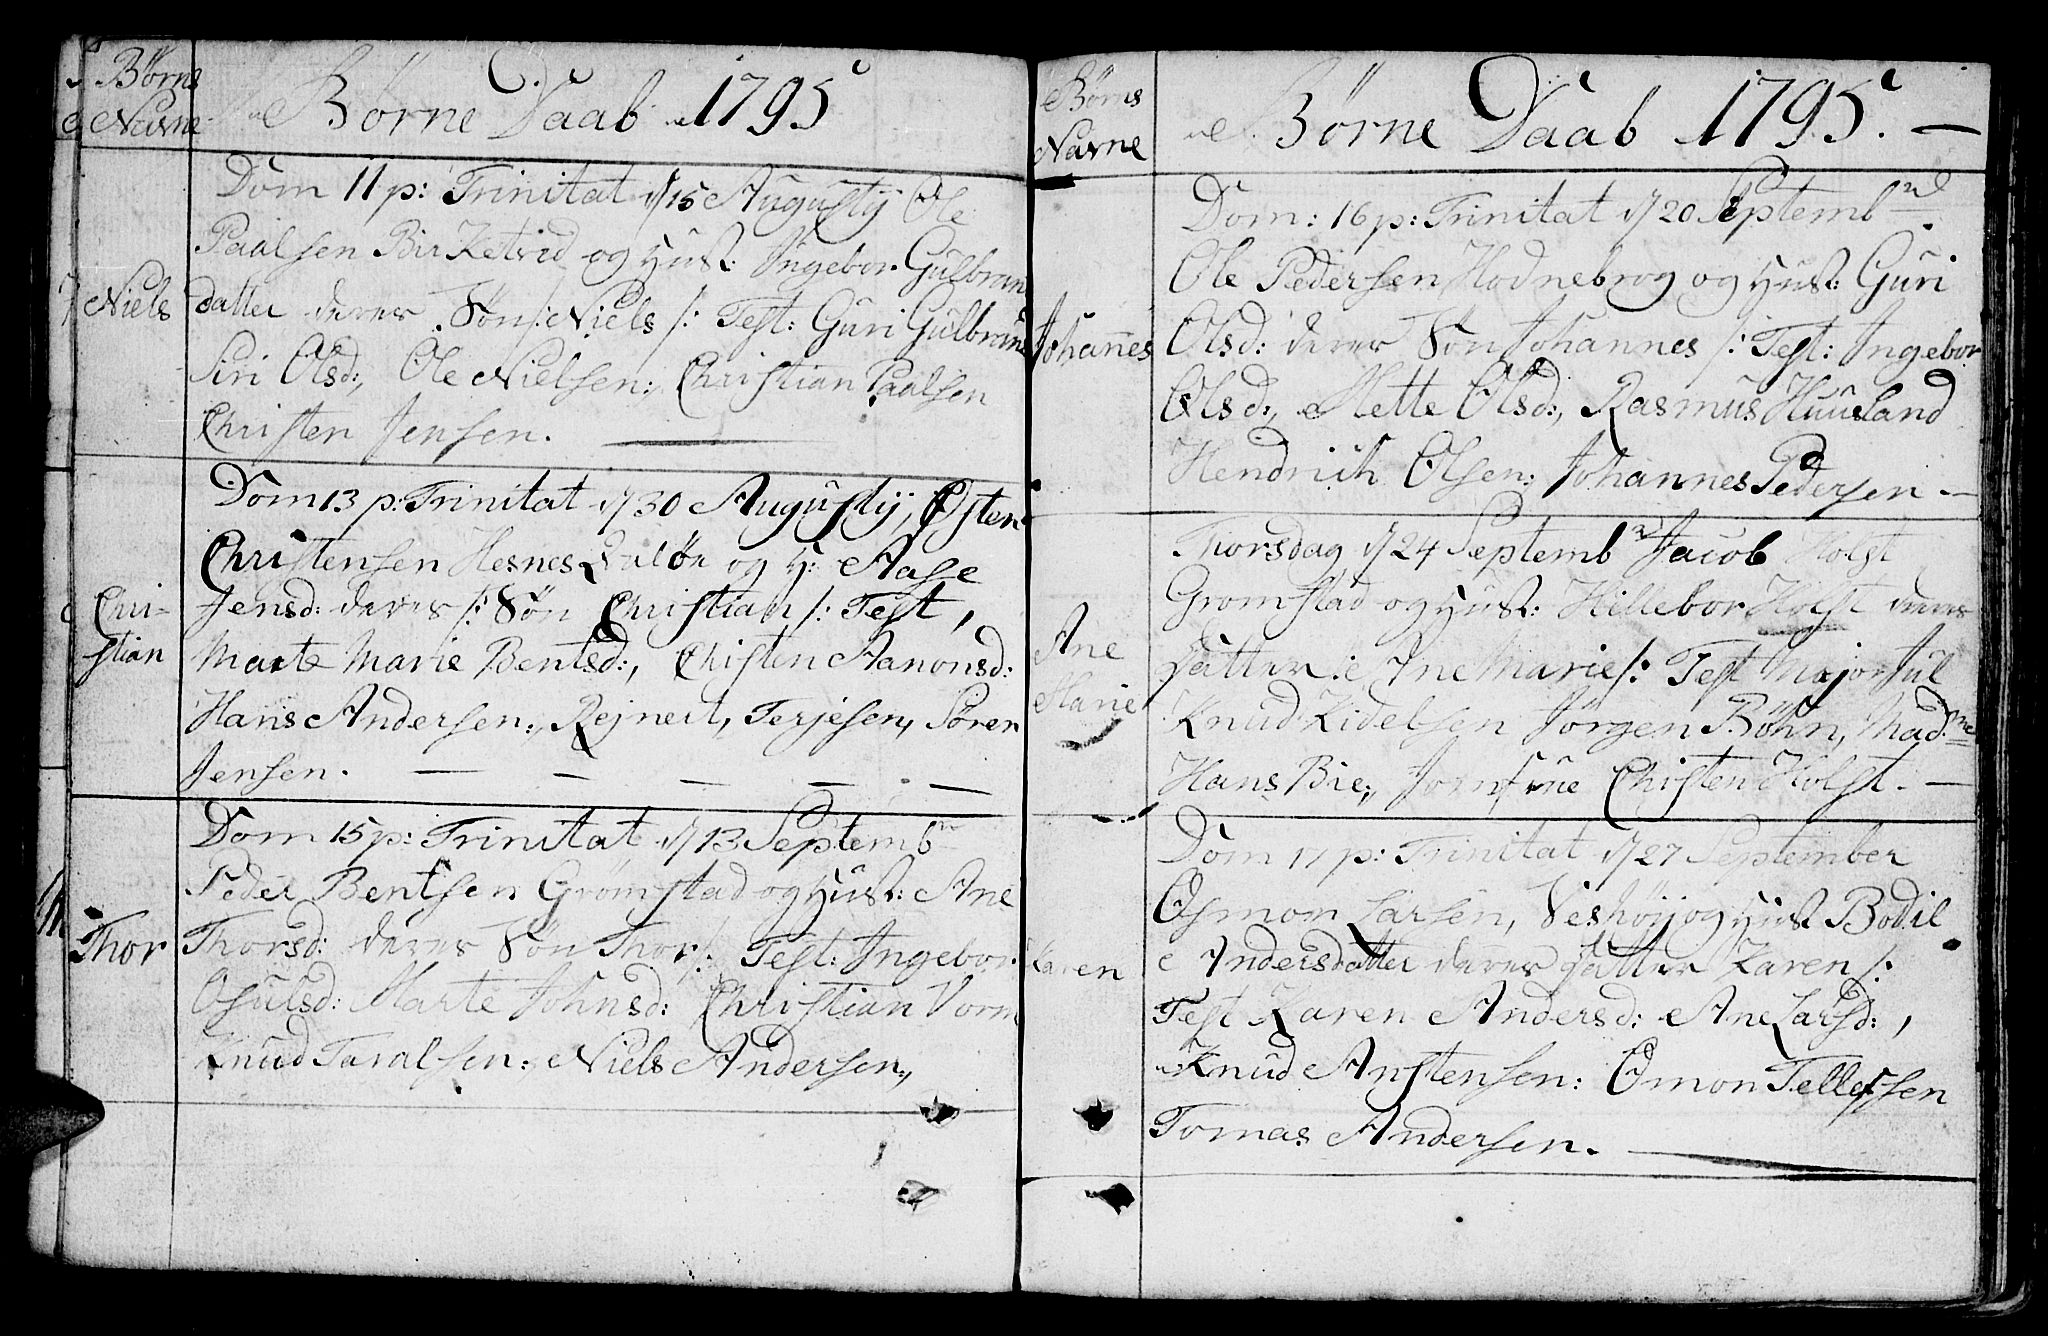 Børns
Navne
Børne Daab 1795
Dom 11 p: Trinitat d 15 Augustij Ole
Paalsen Birketvid og Hust: Ingebor Gulbrans
Niels
datter deres Søn /: Niels /: Test: Guri Gulbrans
Siri Olsd:, Ole Nielsen:, Christian Paalsen
Christen Jensen.
Dom 13 p: Trinitat d 30 Augustij, Østen
Christensen Hesnes og H: Aase
Chri-
stian
Jensd: deres /: Søn Christian /: Test,
Marte Marie Bentsd:, Christen Aanonsd:
Hans Andersen:, Rejnert, Terjesen, Søren
Jensen.
Dom 15 p: Trinitat d 13 Septembr
Peder Bentsen Grømstad og Hust: Ane
Thor
Thorsd: deres Søn Thor /: Test: Ingebor
Osulsd: Marte Johnsd: Christian Vorm
Knud Taralsen: Niels Andersen.,
Børns
Navne
Børne Daab 1795. —
Dom: 16 p: Trinitat d 20 Septembr
Ole Pedersen Hodnebrog og Hust: Guri
Johannes
Olsd: deres Søn Johannes /: Test: Ingebor
Olsd:, Mette Olsd:, Rasmus Huusland
Hendrich Olsen; Johannes Pedersen —
Torsdag d 24 Septembr Jacob Holst
Gromstad og Hust: Hillebor Holst deres
Ane
Marie
Datter :/: Ane Marie /: Test Major Jul
Knud Kidelsen Jørgen Bøhn, Madme
Hans Bie:, Jomfrue Christen Holst. —
Dom 17 p: Trinitat d 27 September
Osmon Larsen, Veshøij og Hust Bodil
Karen
Andersdatter deres Datter Karen /:
Test Karen Andersd: Ane Larsd:,
Knud Anstensen: Omon Tellefsen
Tomas Andersen.